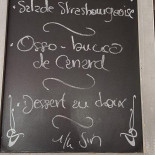 Salade Strasbourgeoise
Osso-bucco
de Canard
Dessert au choux
1/4 vin